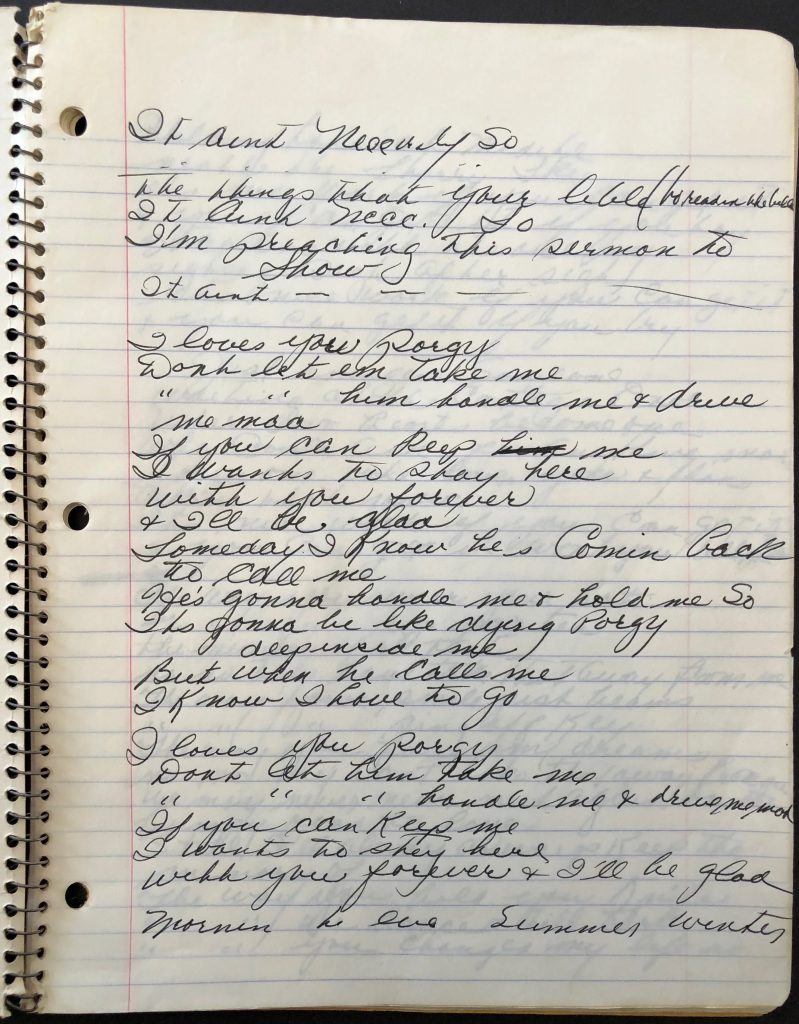 It aint Neccerly So
The things that your bible (to readin the bible
It aint necc. So
I'm preaching this sermon to
Show
It aint — — —
I loves you Porgy
Dont let em take me
" " him handle me & drive
me mad
If you can keep him me
I wants to stay here
with you forever
& I'll be glad
Someday I know he's Comin back
to call me
He's gonna handle me & hold me So
Its gonna be like dying Porgy
deepinside me
But when he calls me
I know I have to go
I loves you Porgy
Dont let him take me
" " " handle me & drive me mad
If you can keep me
I wants to stay here
with you forever & I'll be glad
Mornin to eve Summer Winter